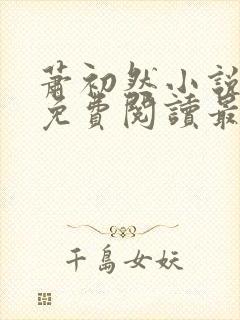 蕭初然小說
免費閱讀最
千島女妖